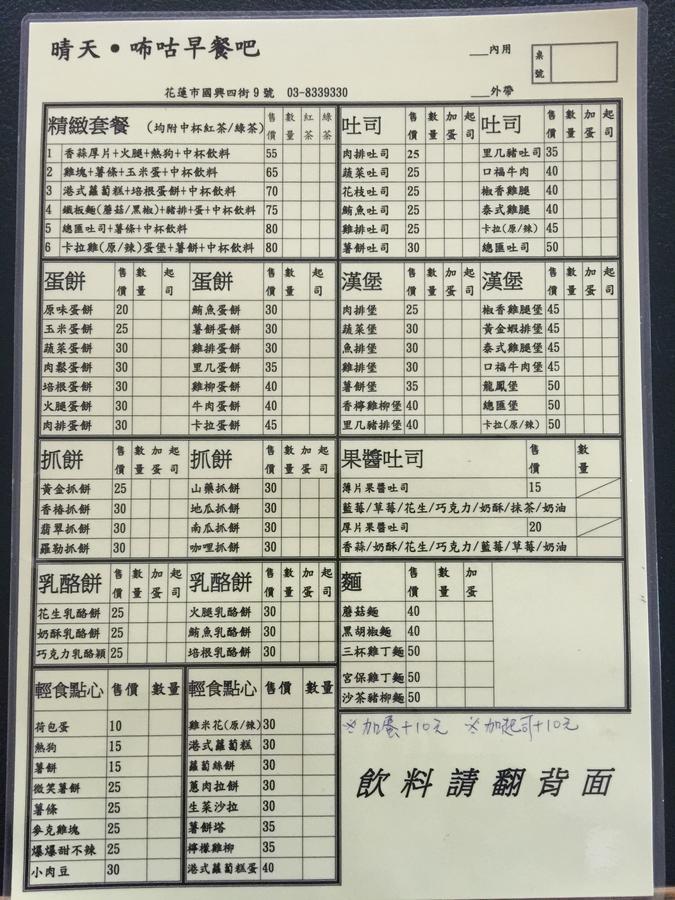 晴天•咘咕早餐吧
___內用
桌號
花蓮市國興四街9號 03-8339330
___外帶
精緻套餐 (均附中杯紅茶/綠茶) 售價 數量 紅茶 綠茶
1 香蒜厚片+火腿+熱狗+中杯飲料 55
2 雞塊+薯條+玉米蛋+中杯飲料 65
3 港式蘿蔔糕+培根蛋餅+中杯飲料 70
4 鐵板麵(蘑菇/黑椒)+豬排+蛋+中杯飲料 75
5 總匯吐司+薯條+中杯飲料 80
6 卡拉雞(原/辣)蛋堡+薯餅+中杯飲料 80
吐司 售價 數量 加蛋 起司 吐司 售價 數量 加蛋 起司
肉排吐司 25 里几豬吐司 35
蔬菜吐司 25 口福牛肉 40
花枝吐司 25 椒香雞腿 40
鮪魚吐司 25 泰式雞腿 40
雞排吐司 25 卡拉(原/辣) 45
薯餅吐司 30 總匯吐司 50
蛋餅 售價 數量 起司 蛋餅 售價 數量 起司
原味蛋餅 20 鮪魚蛋餅 30
玉米蛋餅 25 薯餅蛋餅 30
蔬菜蛋餅 30 雞排蛋餅 30
肉鬆蛋餅 30 里几蛋餅 35
培根蛋餅 30 雞柳蛋餅 40
火腿蛋餅 30 牛肉蛋餅 40
肉排蛋餅 30 卡拉蛋餅 45
漢堡 售價 數量 加蛋 起司 漢堡 售價 數量 加蛋 起司
肉排堡 25 椒香雞腿堡 45
蔬菜堡 30 黃金蝦排堡 45
魚排堡 30 泰式雞腿堡 45
雞排堡 30 口福牛肉堡 45
薯餅堡 35 龍鳳堡 50
香檸雞柳堡 40 總匯堡 50
里几豬排堡 40 卡拉(原/辣) 50
抓餅 售價 數量 加蛋 起司 抓餅 售價 數量 加蛋 起司
黃金抓餅 25 山藥抓餅 30
香椿抓餅 30 地瓜抓餅 30
翡翠抓餅 30 南瓜抓餅 30
羅勒抓餅 30 咖哩抓餅 30
果醬吐司 售價 數量
薄片果醬吐司 15
藍莓/草莓/花生/巧克力/奶酥/抹茶/奶油
厚片果醬吐司 20
香蒜/奶酥/花生/巧克力/藍莓/草莓/奶油
乳酪餅 售價 數量 加蛋 起司 乳酪餅 售價 數量 加蛋 起司
花生乳酪餅 25 火腿乳酪餅 30
奶酥乳酪餅 25 鮪魚乳酪餅 30
巧克力乳酪穎 25 培根乳酪餅 30
麵 售價 數量 加蛋
蘑菇麵 40
黑胡椒麵 40
三杯雞丁麵 50
宮保雞丁麵 50
沙茶豬柳麵 50
輕食點心 售價 數量 輕食點心 售價 數量
荷包蛋 10 雞米花(原/辣) 30
熱狗 15 港式蘿蔔糕 30
薯餅 15 蘿蔔絲餅 30
微笑薯餅 25 蔥肉拉餅 30
薯條 25 生菜沙拉 30
麥克雞塊 25 薯餅塔 35
爆爆甜不辣 25 檸檬雞柳 35
小肉豆 30 港式蘿蔔糕蛋 40
※加蛋+10元 ※加起司+10元
飲料請翻背面